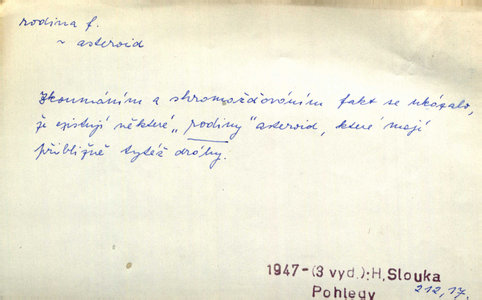 rodina f.
~ asteroid
Zkoumáním a shromažďováním fakt se ukázalo,
že existují některé „rodiny" asteroid, které mají
přibližně tytéž dráhy.
1947-(3 vyd.):H,Slouka
Pohledy 212,17.